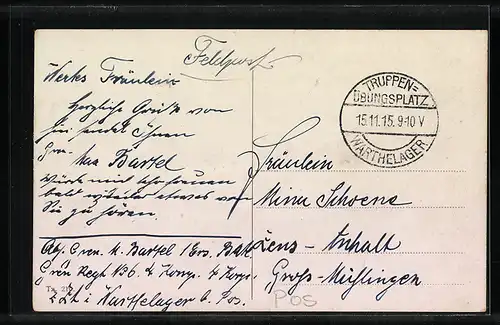 Feldpost
Wertes Fräulein
Herzliche Grüße von
hier sendet Ihnen
Gren. Max Bartel
Würde mich sehr freuen
bald wieder etwas von
Sie zu hören.
Abs. Gren. M. Bartel / Ers. Batl.
Gren Regt N° 6. 2 Korp. 4 Korp.
ZZt i Warthelager b. Pos.
Tx. 212
TRUPPEN=
ÜBUNGSPLATZ
15.11.15. 9-10 V
WARTHELAGER
Fräulein
Minna Schoene
Anhalt
Groß-Mühlingen
POS